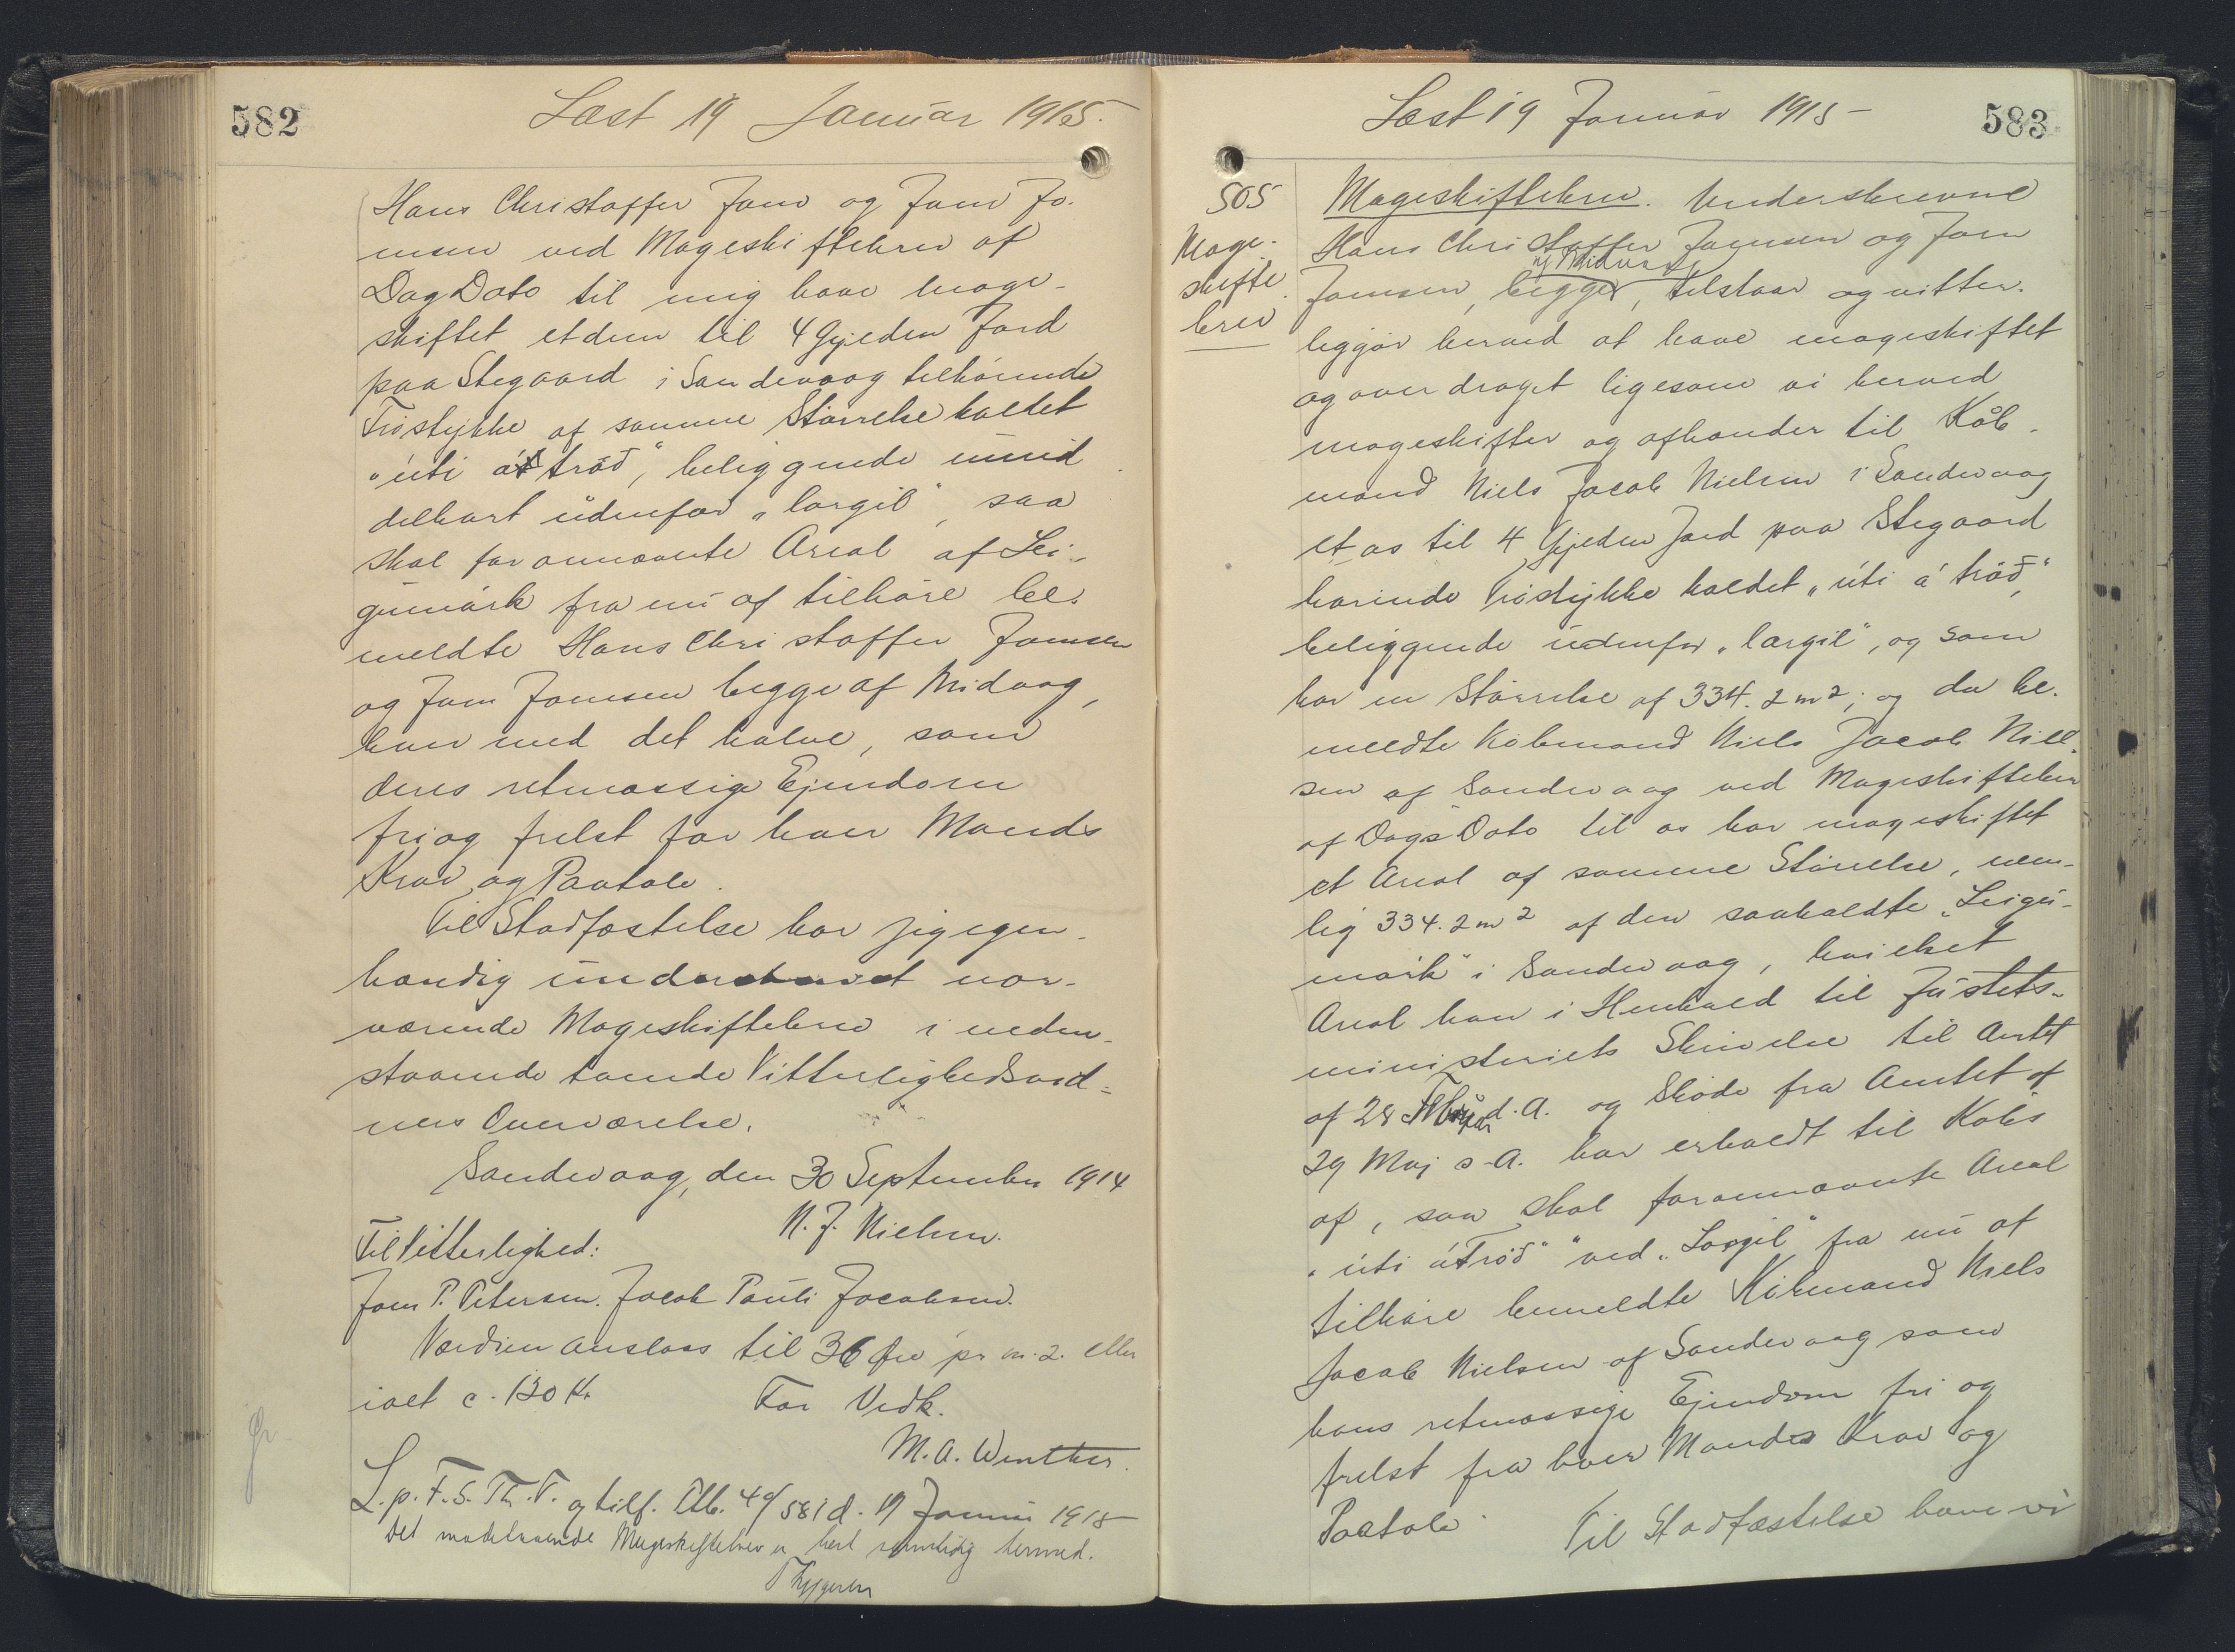 582
Læst 19 Januar 1915.
Hans Christoffer Joens og Joen Jo-
ensen ved Mageskiftebrev af
Dag Dato til mig have mage-
skiftet et dem til 4 Gyeden Jord
paa Stegaard i Sandevaag tilhørende
Trøstykke af samme Størrelse kaldet
"úti á tröð", beliggende umid
delbart udenfor "largil", saa
skal forannævnte Areal af Lei-
gumørk fra nu af tilhøre be-
meldte Hans Christoffer Joensen
og Joen Joensen begge af Midvaag,
hver med det halve, som
deres retmæssige Ejendom
fri og frelst for hver Mands
Krav og Paatale.
Til Stadfæstelse har jeg egen-
hændig underskrevet nær-
værende Mageskiftebrev i neden-
staaende tvende Vitterlighedsvid-
ners Overværelse.
Sandevaag, den 30 September 1914
N. J. Nielsen.
Til Vitterlighed:
Joen P. Petersen. Jacob Pauli Jacobsen.
Værdien anslaas til 36 Øre pr m. 2. eller
ialt c. 130 Kr
For Vedk.
M. A. Winther.
L. p. F. S. Th. V. og tilf. Atb. 40/581 d. 19 Januar 1915
Det modstaaende Mageskiftebrev er læst samtidig hermed.
Læst 19 Januar 1915
583
505
Mage-
skifte
brev
Mageskiftebrev. Underskrevne
Hans Christoffer Joensen og Joen
af Midvaag
Joensen, begge, tilstaar og vitter-
liggør herved at have mageskiftet
og overdraget ligesom vi herved
mageskifter og afhænder til Køb-
mand Niels Jacob Nielsen i Sandevaag
et os til 4 Gyeden Jord paa Stegaard
hørende Trøstykke kaldet "úti á tröð",
beliggende udenfor "largil", og som
har en Størrelse af 334.2 m2; og da be-
meldte Købmand Niels Jacob Niel-
sen af Sandevaag ved Mageskiftebrev
af Dags Dato til os har mageskiftet
et Areal af samme Størrelse, nem-
lig 334.2 m2 af den saakaldte "Leigu-
mørk" i Sandevaag, hvilket
Areal han i Henhold til Justits-
ministeriets Skrivelse til Amtet
af 28 Februar d. A. og Skøde fra Amtet af
29 Maj s. A. har erholdt til Købs
af, saa skal forannævnte Areal
"úti á Tröð" ved "Largil" fra nu af
tilhøre bemeldte Købmand Niels
Jacob Nielsen af Sandevaag som
hans retmæssige Ejendom fri og
frelst fra hver Mands Krav og
Paatale.
Til Stadfæstelse have vi